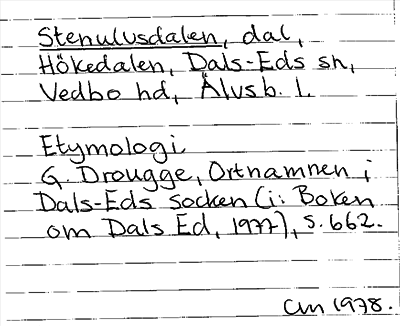 Stenulvsdalen, dal,
Hökedalen, Dals-Eds sn,
Vedbo hd, Älvsb. l.
Etymologi
G. Drougge, Ortnamnen i
Dals-Eds socken (i: Boken
om Dals Ed, 1977), s. 662.
CM 1978.